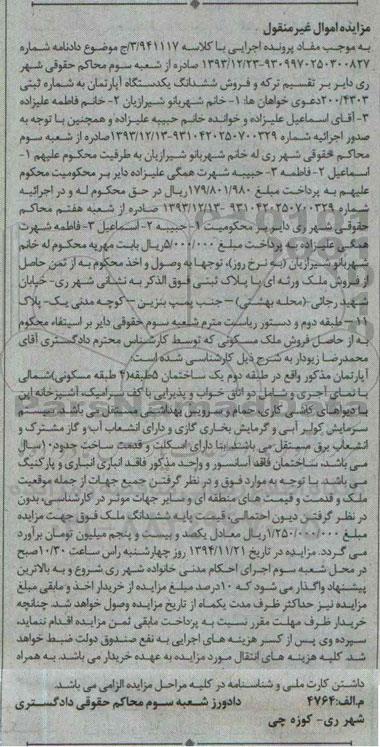 مزایده اموال غیر منقول
به موجب مفاد پرونده اجرایی با کلاسه ۹۴۱۱۱۷/۳/ج موضوع دادنامه شماره
۹۳۰۹۹۷۰۲۵۰۳۰۰۸۲۷-۱۳۹۳/۱۲/۲۳ صادره از شعبه سوم محاکم حقوقی شهر
ری دایر بر تقسیم ترکه و فروش ششدانگ یکدستگاه آپارتمان به شماره ثبتی
۲۰۰/۴۴۰۳دعوی خواهان ها: ۱- خانم شهربانو شیرازیان ۲- خانم فاطمه علیزاده
۳- آقای اسماعیل علیزاده و خوانده خانم حبیبه علیزاده و همچنین با توجه به
صدور اجرائیه شماره ۹۳۱۰۴۲۰۲۵۰۷۰۰۳۲۹-۱۳۹۳/۱۲/۱۳صادره از شعبه سوم
محاکم حقوقی شهر ری له خانم شهربانو شیرازیان به طرفیت محکوم علیهم ۱-
اسماعیل ۲- فاطمه ۳- حبیبه شهرت همگی علیزاده دایر بر محکومیت محکوم
علیهم به پرداخت مبلغ ۱۷۹/۸۰۱/۹۸۰ ریال در حق محکوم له و در اجرائیه
شماره ۹۳۱۰۴۲۰۲۵۰۷۰۰۳۲۹ -۱۳۹۳/۱۲/۱۳ صادره از شعبه هفتم محاکم
حقوقی شهر ری دایر بر محکومیت ۱- حبیبه ۲- اسماعیل ۳- فاطمه شهرت
همگی علیزاده به پرداخت مبلغ ۵/۰۰۰/۰۰۰ریال بابت مهریه محکوم له خانم
شهربانو شیرازیان (به نرخ روز)، توجها به وصول و اخذ محکوم به از ثمن حاصل
از فروش ملک ورثه ای با پلاک ثبتی فوق الذکر به نشانی شهر ری- خیابان
شهید رجائی-(محله بهشتی) – جنب پمپ بنزین – کوچه مدنی یک- پلاک
۱۱ – طبقه دوم و دستور ریاست مترم شعبه سوم حقوقی دایر بر استیفاء محکوم
به از حاصل فروش ملک مسکونی که توسط کارشناس محترم دادگستری آقای
محمدرضا زیودار به شرح ذیل کارشناسی شده است:
آپارتمان مذکور واقع در طبقه دوم یک ساختمان ۵طبقه(۴ طبقه مسکونی)شمالی
با نمای آجری و شامل دو اتاق خواب و پذیرایی با کف سرامیک، آشپزخانه اپن
با دیوارهای کاشی کاری، حمام و سرویس بهداشتی مستقل می باشد. سیستم
سرمایش کولر آبی و گرمایش بخاری گازی و دارای انشعاب آب و گاز مشترک و
انشعاب برق مستقل می باشد. بنا دارای اسکلت و قدمت ساخت حدود۱۰ سال
می باشد، ساختمان فاقد آسانسور و واحد مذکور فاقد انباری و پارکینگ
می باشد. با توجه به موارد فوق و در نظر گرفتن جمیع جهات از جمله موقعیت
ملک و قدمت و قیمت های منطقه ای و سایر جهات موثر در کارشناسی، بدون
در نظر گرفتن دیون احتمالی، قیمت پایه ششدانگ ملک فوق جهت مزایده
مبلغ ۱/۲۵۰/۰۰۰/۰۰۰ریال معادل یکصد و بیست و پنجم میلیون تومان برآورد
می گردد. مزایده در تاریخ ۱۳۹۴/۱۱/۲۱ روز چهارشنبه راس ساعت ۱۰/۳۰صبح
در محل شعبه سوم اجرای احکام مدنی خانواده شهر ری شروع و به بالاترین
پیشنهاد واگذار می شود که ۱۰درصد مبلغ مزایده از خریدار اخذ و مابقی مبلغ
مزایده نیز حداکثر ظرف مدت یکماه از تاریخ مزایده وصول خواهد شد. چنانچه
خریدار ظرف مهلت مقرر نسبت به پرداخت مابقی ثمن مزایده اقدام ننماید،
سپرده وی پس از کسر هزینه های اجرایی به نفع صندوق دولت ضبط خواهد
شد. کلیه هزینه های انتقال مورد مزایده به عهده خریدار می باشد. به همراه
داشتن کارت ملی و شناسنامه در کلیه مراحل مزایده الزامی می باشد.
م.الف:۴۷۶۴ دادورز شعبه سوم محاکم حقوقی دادگستری
شهر ری- کوزه چی